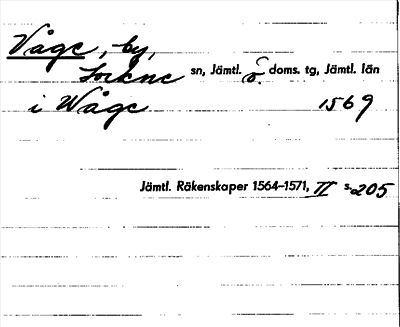 Våge, by,
Lockne sn, Jämtl. ö. doms. tg, Jämtl. län
i Wåge 1569
Jämtl. Räkenskaper 1564–1571, II s. 205